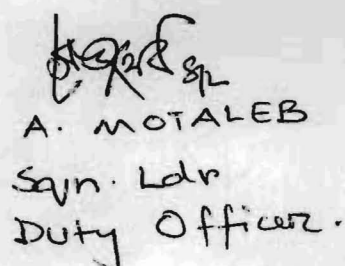 A. MOTALEB
Sqn. Ldr
Duty Officer.